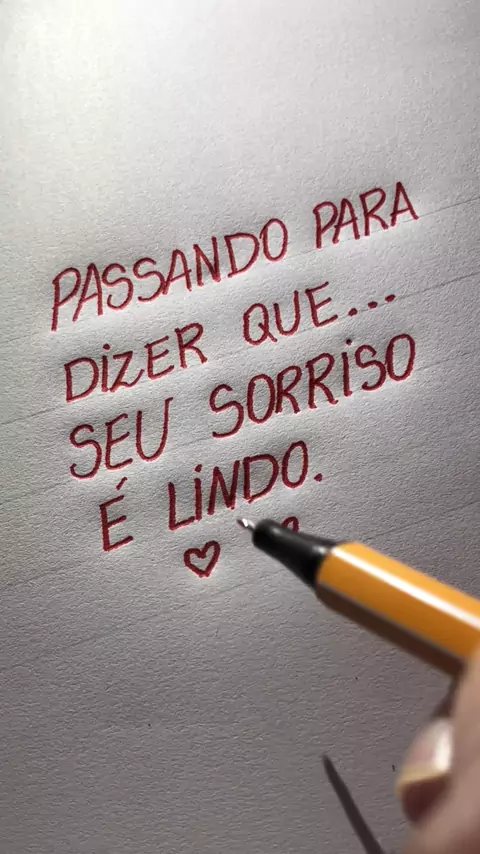 PASSANDO PARA
DIZER QUE...
SEU SORRISO
É LINDO.